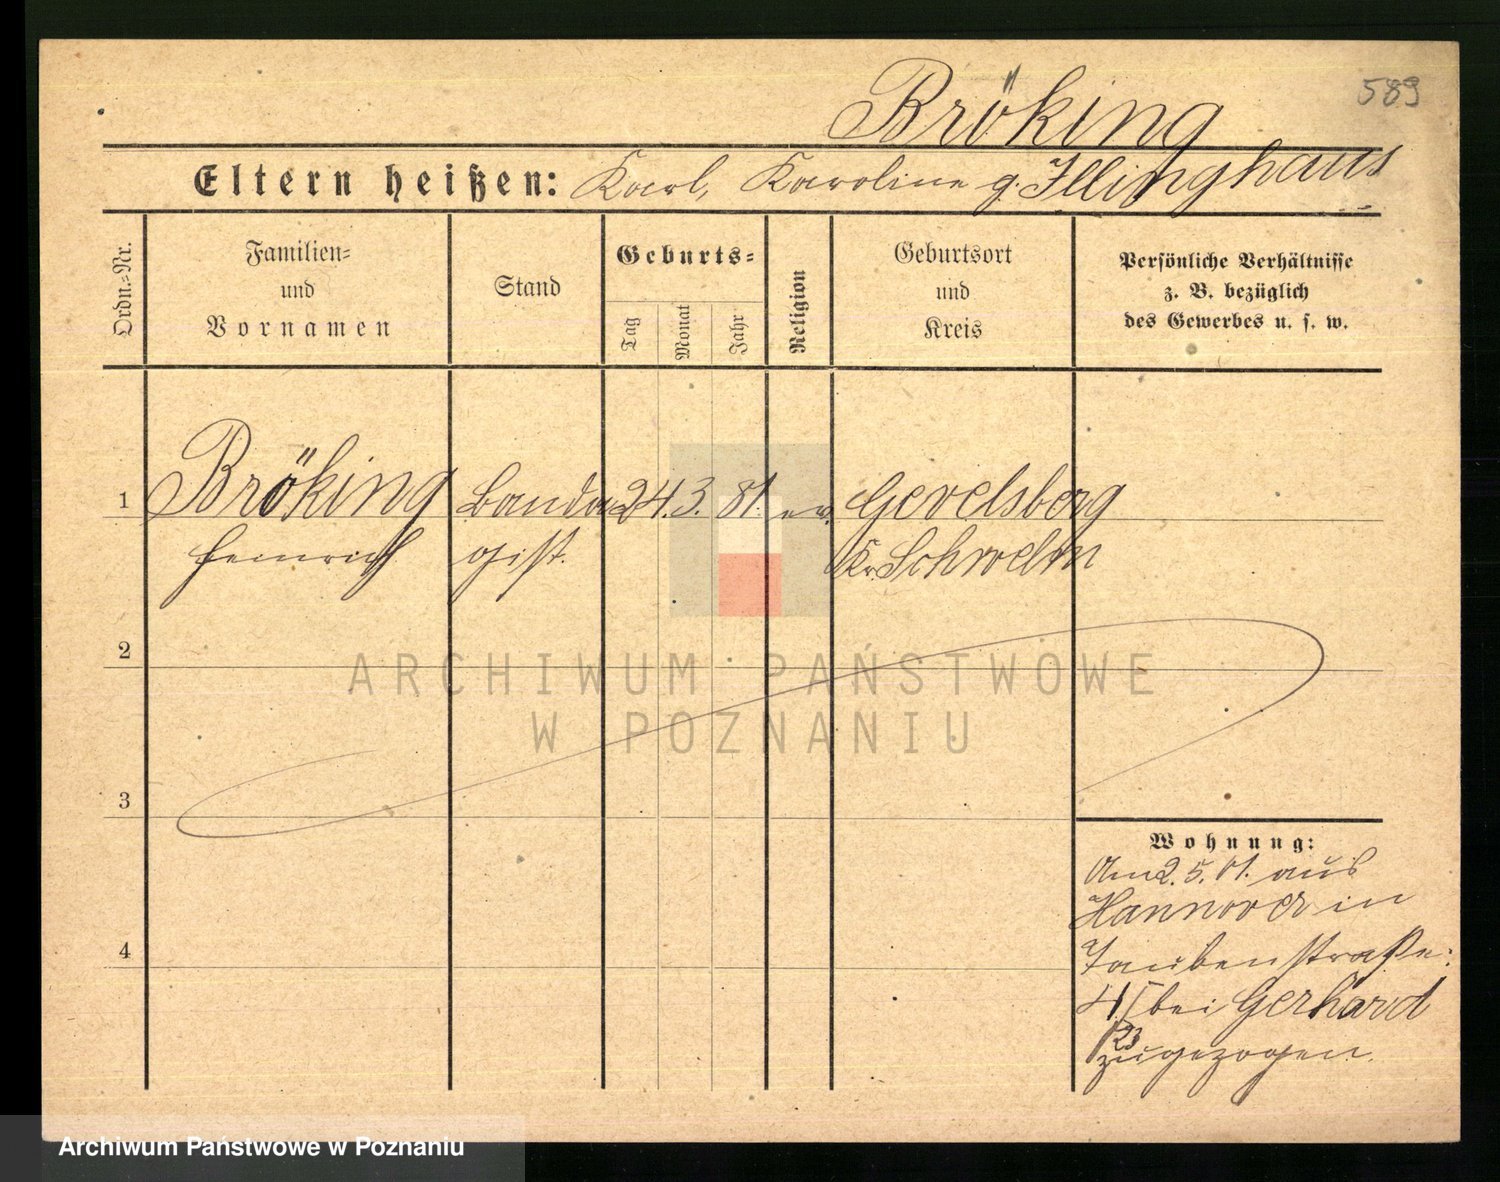 589
Bröking
Eltern heißen: Karl, Karoline g. Illinghaus
Ordn.=Nr.
Familien=
und
Vornamen
Stand
Geburts=
Tag
Monat
Jahr
Religion
Geburtsort
und
Kreis
Persönliche Verhältnisse
z. B. bezüglich
des Gewerbes u. s. w.
1 Bröking Banda 24. 3. 81. ev. Gevelsberg
Heinrich gist. Kr. Schwelm
2
ARCHIWUM PAŃSTWOWE
W POZNANIU
3
Wohnung:
Am 2. 5. 01. aus
Hannover in
4 Taubenstraße:
4 I bei Gerhard
23
zugezogen.
Archiwum Państwowe w Poznaniu